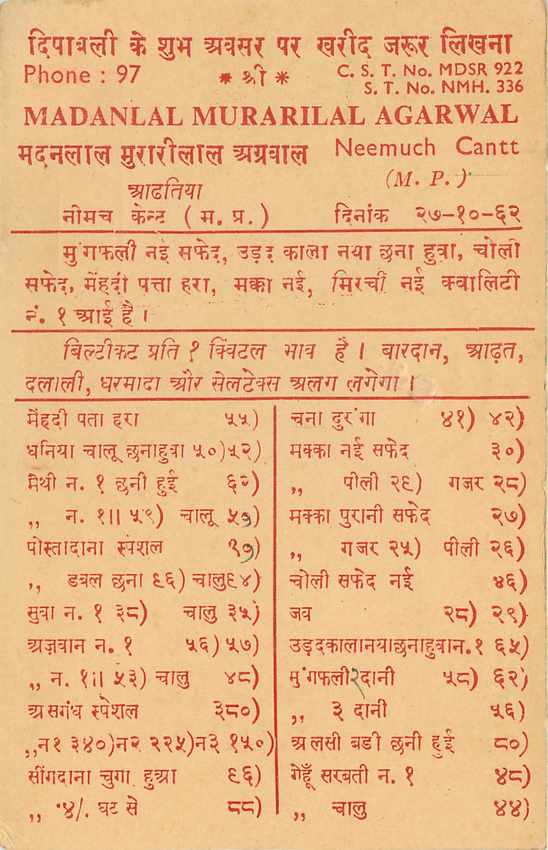 दिपावली के शुभ अवसर पर खरीद जरूर लिखना
Phone : 97
* श्री *
C. S. T. No. MDSR 922
S. T. No. NMH. 336
MADANLAL MURARILAL AGARWAL
मदनलाल मुरारीलाल अग्रवाल Neemuch Cantt
(M. P.)
आढतिया
नीमच केन्ट ( म. प्र. ) दिनांक २७-१०-६२
मुंगफली नई सफेद, उड़द काला नया छना हुवा, चोली
सफेद, मेंहदी पत्ता हरा, मक्का नई, मिरची नई क्वालिटी
नं. १ आई है ।
बिल्टीकट प्रति १ क्विंटल भाव है । बारदान, आढ़त,
दलाली, धरमादा और सेलटेक्स अलग लगेगा ।
मेंहदी पता हरा ५५)
धनिया चालू छनाहुवा ५०)५२)
मैथी न. १ छनी हुई ६२)
,, न. १॥ ५९) चालू ५७)
पोस्तादाना स्पेशल ९७)
,, डबल छना ९६) चालु९४)
सुवा न. १ ३८) चालु ३५)
अजवान न. १ ५६) ५७)
,, न. १॥ ५३) चालु ४८)
असगंध स्पेशल ३८०)
,,न१ ३४०)न२ २२५)न३ १५०)
सींगदाना चुगा हुआ ९६)
,, ·४/. घट से ८८)
चना दुरंगा ४१) ४२)
मक्का नई सफेद ३०)
,, पीली २९) गजर २८)
मक्का पुरानी सफेद २७)
,, गजर २५) पीली २६)
चोली सफेद नई ४६)
जव २८) २९)
उड़दकालानयाछनाहुवान.१ ६५)
मुंगफली२दानी ५८) ६२)
,, ३ दानी ५६)
अलसी बडी छनी हुई ८०)
गेहूँ सरबती न. १ ४८)
,, चालु ४४)